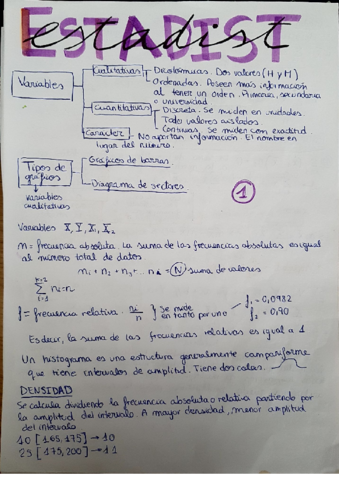 ESTADIST
estadist
Variables
Cualitativas
Dicotómicas. Dos valores (H y M)
Ordenadas. Poseen más información
al tener un orden. Primaria, secundaria
o universidad
Cuantitativas
Discreta. Se miden en unidades
Todo valores aislados
Continuas. Se miden con exactitud
Carácter
No aportan información. El nombre en
lugar del número.
Tipos de
gráficos
Gráficos de barras
Diagrama de sectores
variables
cualitativas
1
Variables X, Y, X₁, X₂
n = frecuencia absoluta. La suma de las frecuencias absolutas es igual
al número total de datos
n₁ + n₂ + n₃ + ... = N suma de valores
f = frecuencia relativa. nᵢ/n } se mide en tanto por uno
f₁ = 0,0982
f₂ = 0,90
Es decir, la suma de las frecuencias relativas es igual a 1
Un histograma es una estructura generalmente campaniforme
que tiene intervalos de amplitud. Tiene dos colas.
DENSIDAD
Se calcula dividiendo la frecuencia absoluta o relativa partiendo por
la amplitud del intervalo. A mayor densidad, menor amplitud
del intervalo
10 [165, 175] → 10
25 [175, 200] → 11